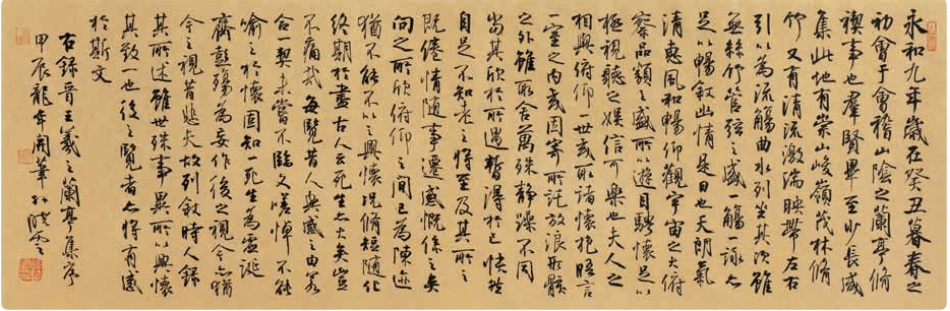 永和九年歲在癸丑暮春之
初會于會稽山陰之蘭亭脩
禊事也羣賢畢至少長咸
集此地有崇山峻嶺茂林脩
竹又有清流激湍映帶左右
引以為流觴曲水列坐其次雖
無絲竹管弦之盛一觴一詠亦
足以暢敘幽情是日也天朗氣
清惠風和暢仰觀宇宙之大俯
察品類之盛所以遊目騁懷足以
極視聽之娛信可樂也夫人之
相與俯仰一世或取諸懷抱晤言
一室之內或因寄所託放浪形骸
之外雖取舍萬殊靜躁不同
當其欣於所遇暫得於己快然
自足不知老之將至及其所之
既倦情隨事遷感慨係之矣
向之所欣俯仰之間已為陳迹
猶不能不以之興懷況脩短隨化
終期於盡古人云死生亦大矣豈
不痛哉每覽昔人興感之由若
合一契未嘗不臨文嗟悼不能
喻之於懷固知一死生為虛誕
齊彭殤為妄作後之視今亦猶
今之視昔悲夫故列敘時人錄
其所述雖世殊事異所以興懷
其致一也後之覽者亦將有感
於斯文
右錄晉王羲之蘭亭集序
甲辰龍年開筆 孫曉雲